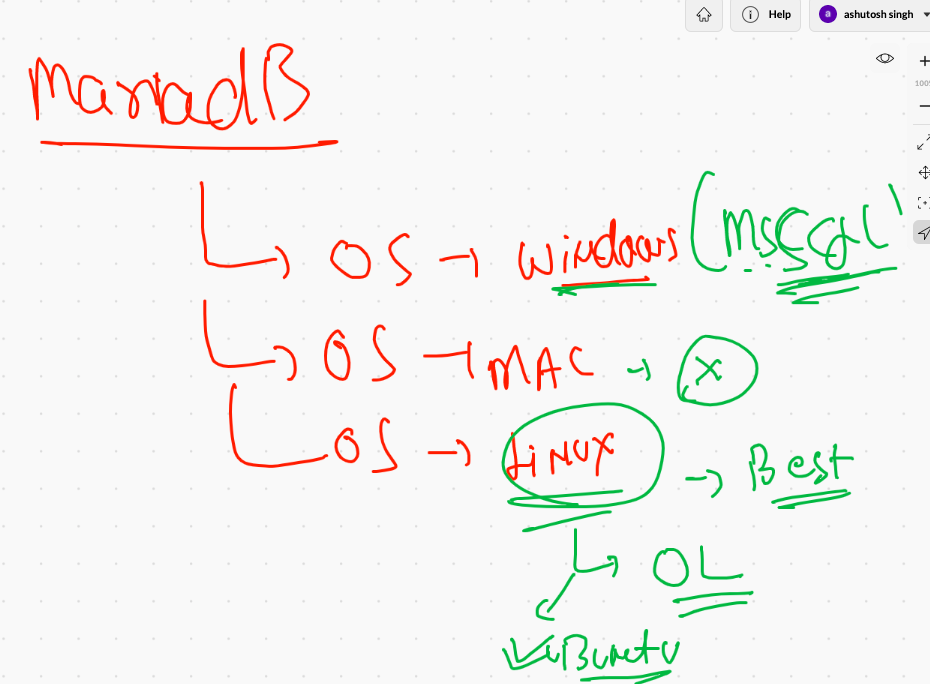 Help
ashutosh singh
100%
MariadB
OS → Windows (MSSql)
OS → MAC → X
OS → LiNUX → Best
OL
UBuntu